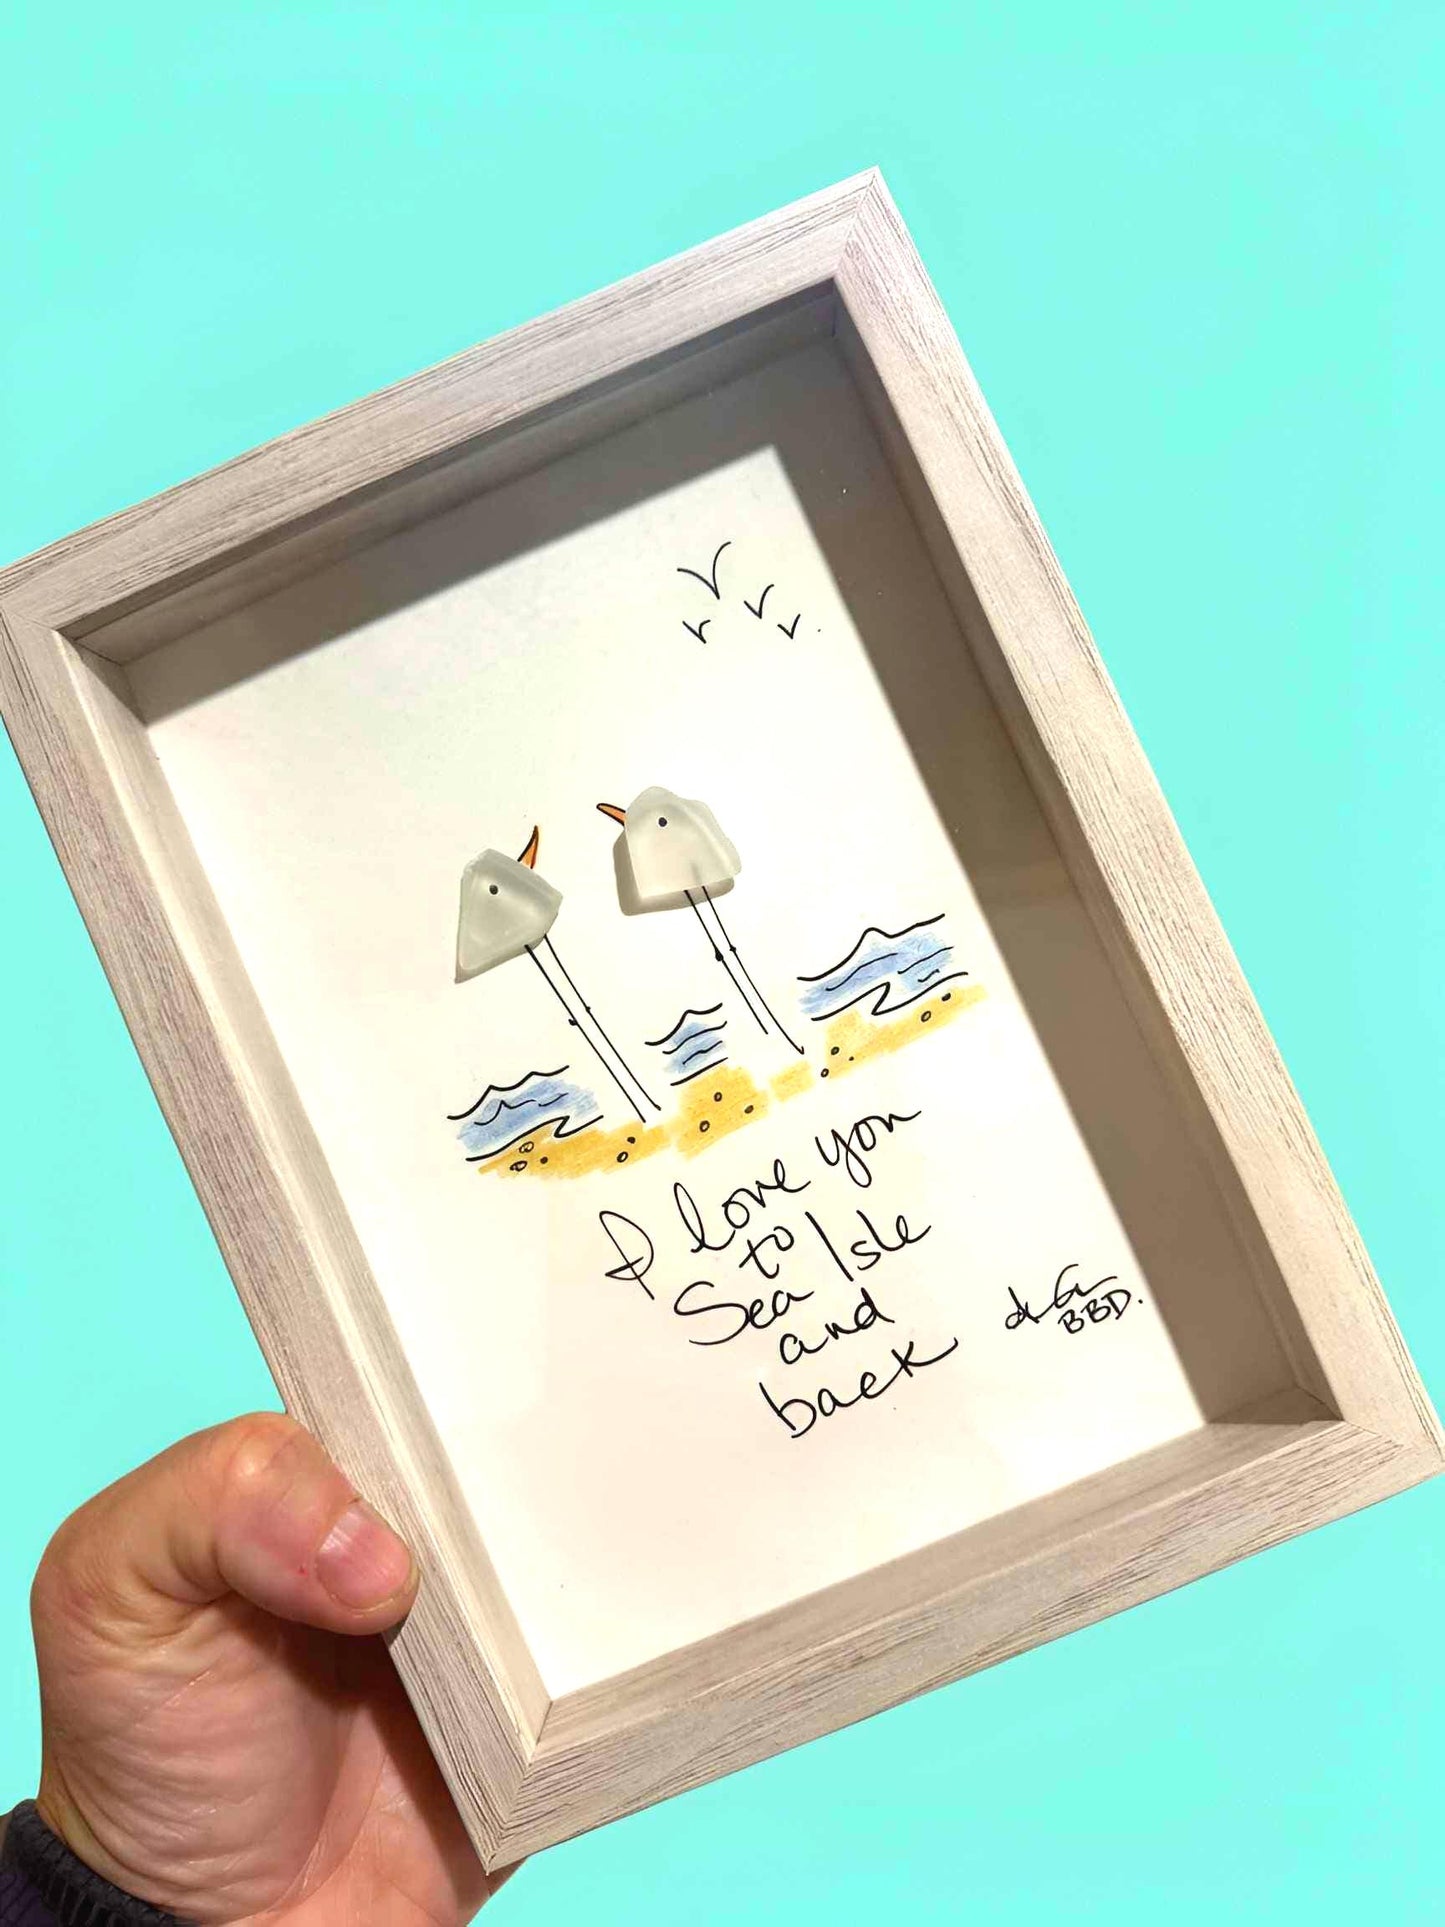 I love you
to
Sea Isle
and
back
BBD.